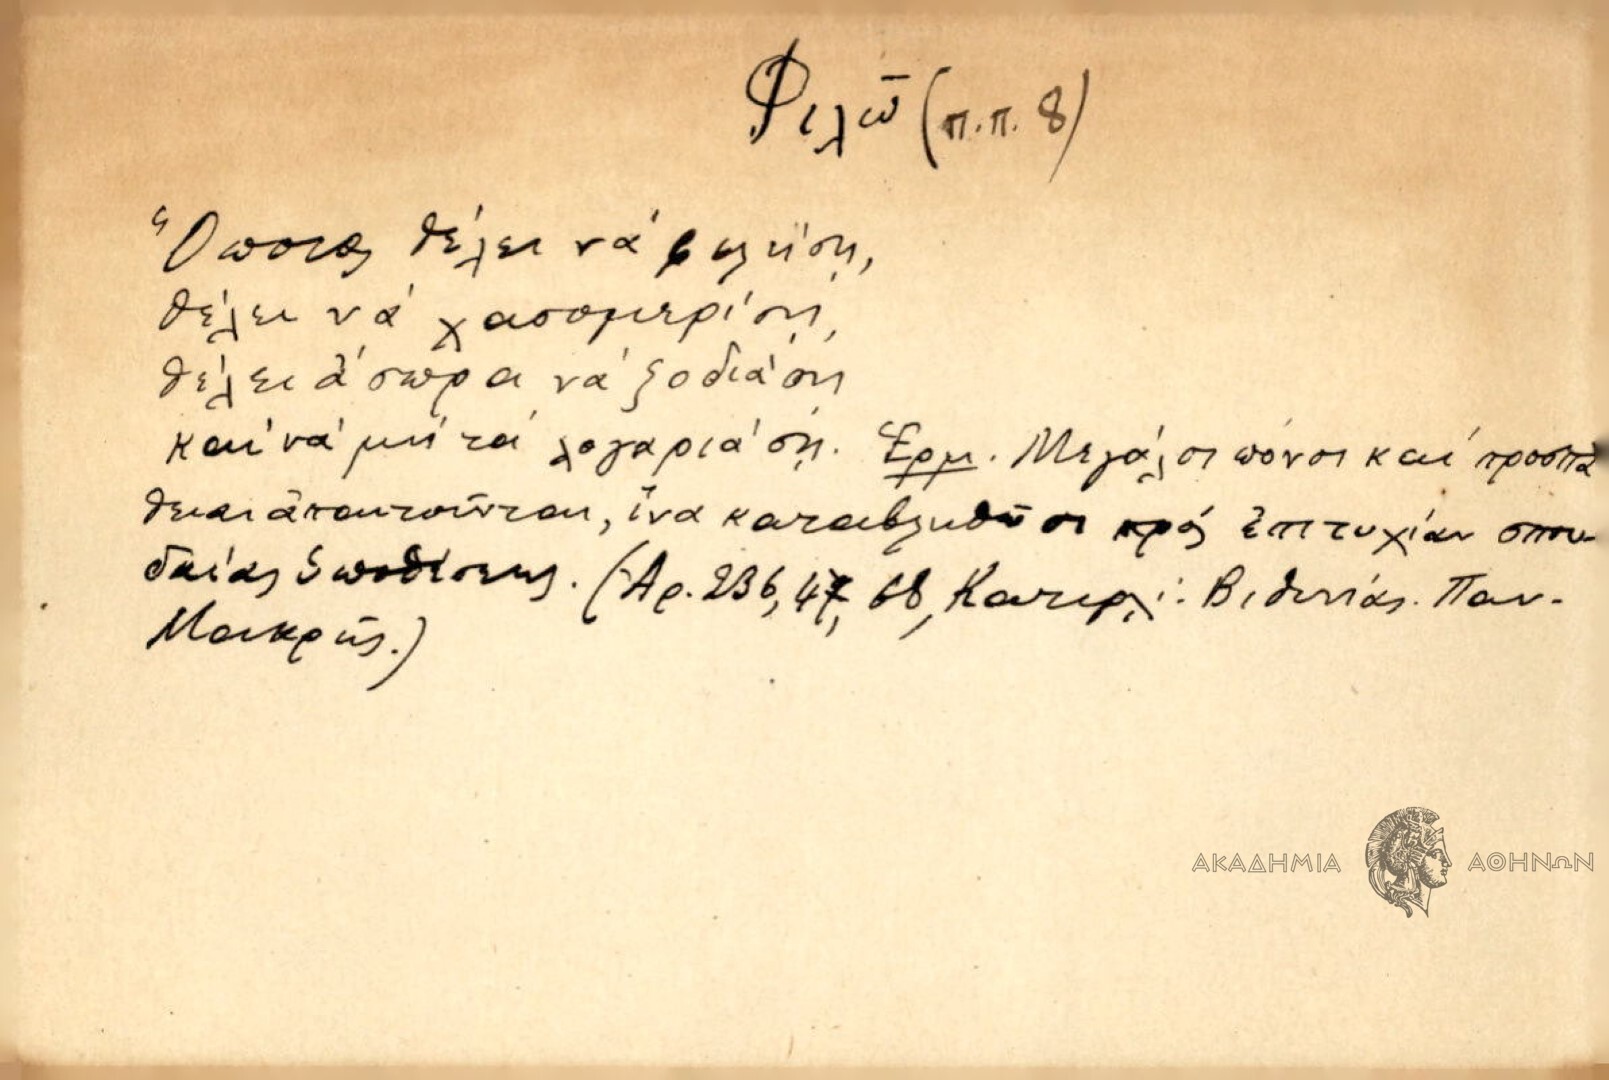 Φιλῶ (π.π. 8)
Ὅποιος θέλει νά φιλήσῃ,
θέλει νά χασομερίσῃ,
θέλει ἄσπρα νά ξοδιάσῃ
καί νά μή τά λογαριάσῃ. Ἑρμ. Μεγάλοι πόνοι καί προσπά
θειαι ἀπαιτοῦνται, ἵνα καταβληθῶσι πρός ἐπιτυχίαν σπου-
δαίας ὑποθέσεως. (Ἀρ. 236, 47, 68, Κατιρλί: Βιθυνίας. Παν.
Μακρῆς.)
ΑΚΑΔΗΜΙΑ ΑΘΗΝΩΝ